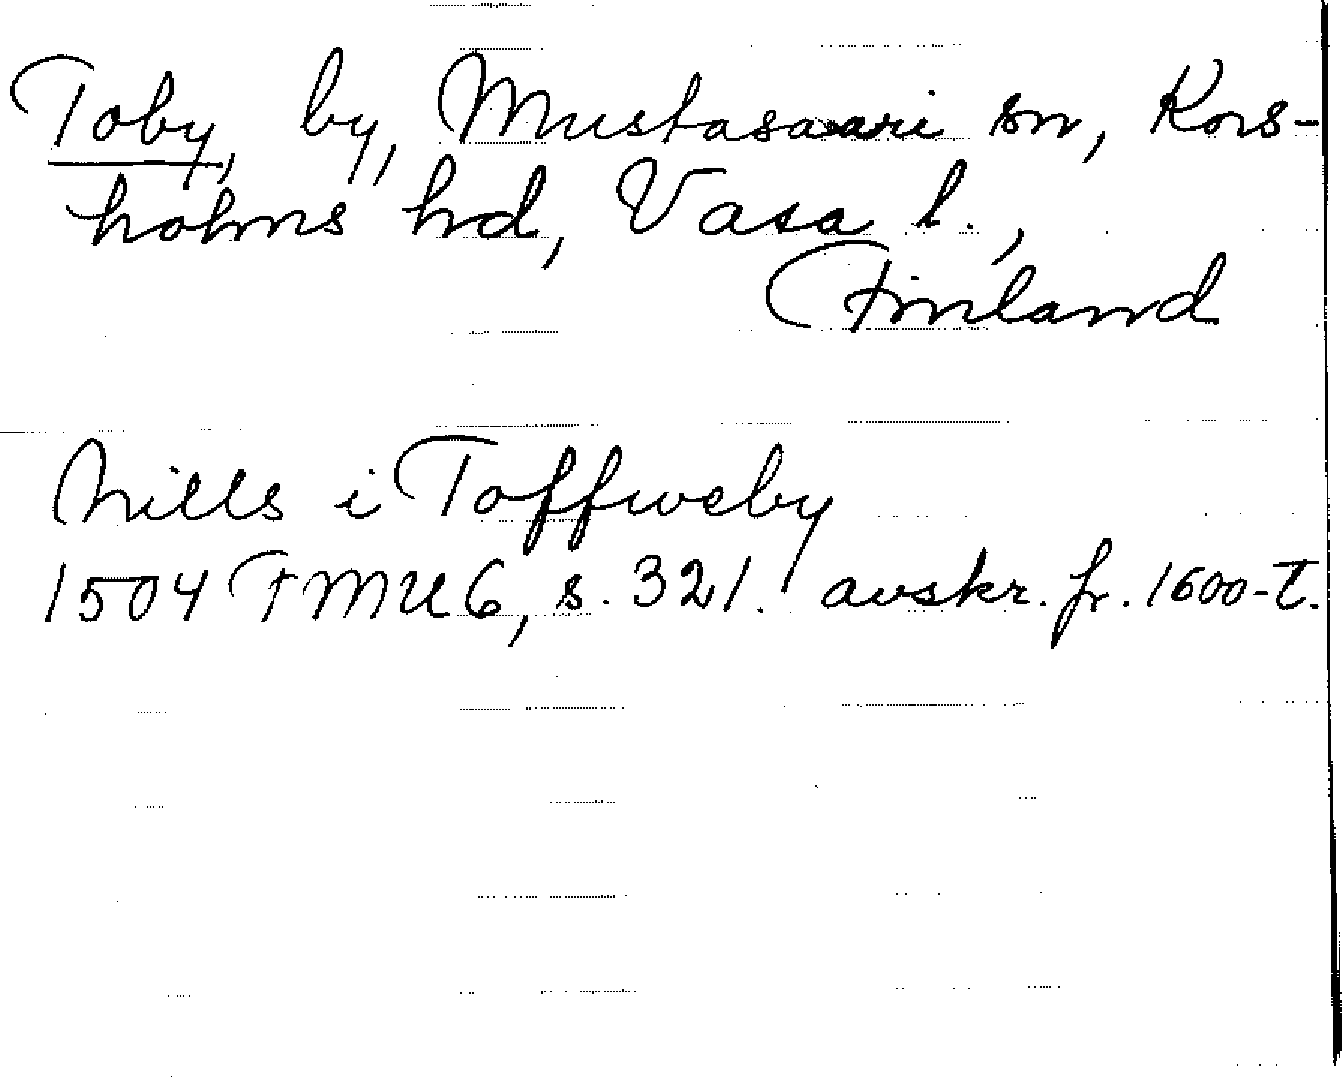 Toby, by, Mustasaari sn, Kors-
holms hd, Vasa l.,
Finland
Nills i Toffweby
1504 FMU 6, s. 321. avskr. fr. 1600-t.